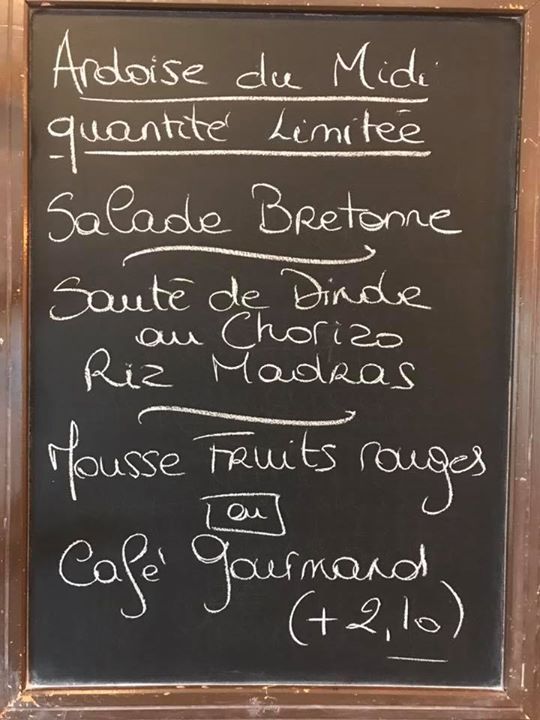 Ardoise du Midi
quantité Limitée
Salade Bretonne
Sauté de Dinde
au Chorizo
Riz Madras
Mousse Fruits rouges
ou
Café gourmand
(+2,10)